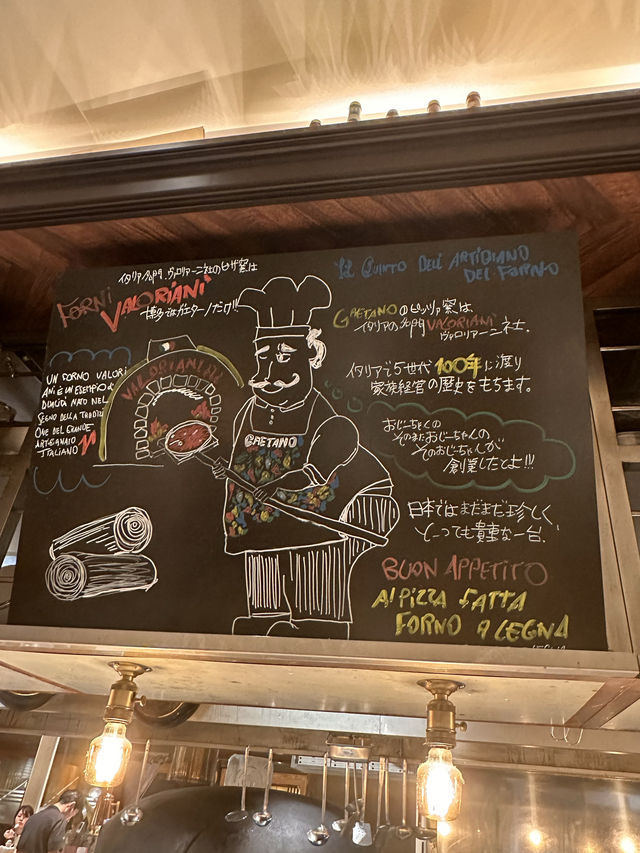 イタリア名門、ヴァロリアーニ社のピザ窯は
FORNI VALORIANI
博多ではガエターノだけ!!
UN FORNO VALORI
ANI È UN ESEMPIO di
QUALITÀ NATO NEL
SEGNO DELLA TRADIZI
ONE DEL GRANDE
ARTIGIANATO
ITALIANO
VALORIANI
GAETANO
IL GUSTO DELL'ARTIGIANO
DEL FORNO
GAETANOのピッツァ窯は、
イタリアの名門VALORIANI
ヴァロリアーニ社。
イタリアで5世代100年に渡り
家族経営の歴史をもちます。
おじーちゃんの
そのまたおじーちゃんの
そのおじーちゃんが
創業したとよ!!!
日本ではまだまだ珍しく、
とーっても貴重な一台。
BUON APPETITO
Ai PIZZA FATTA
FORNO A LEGNA